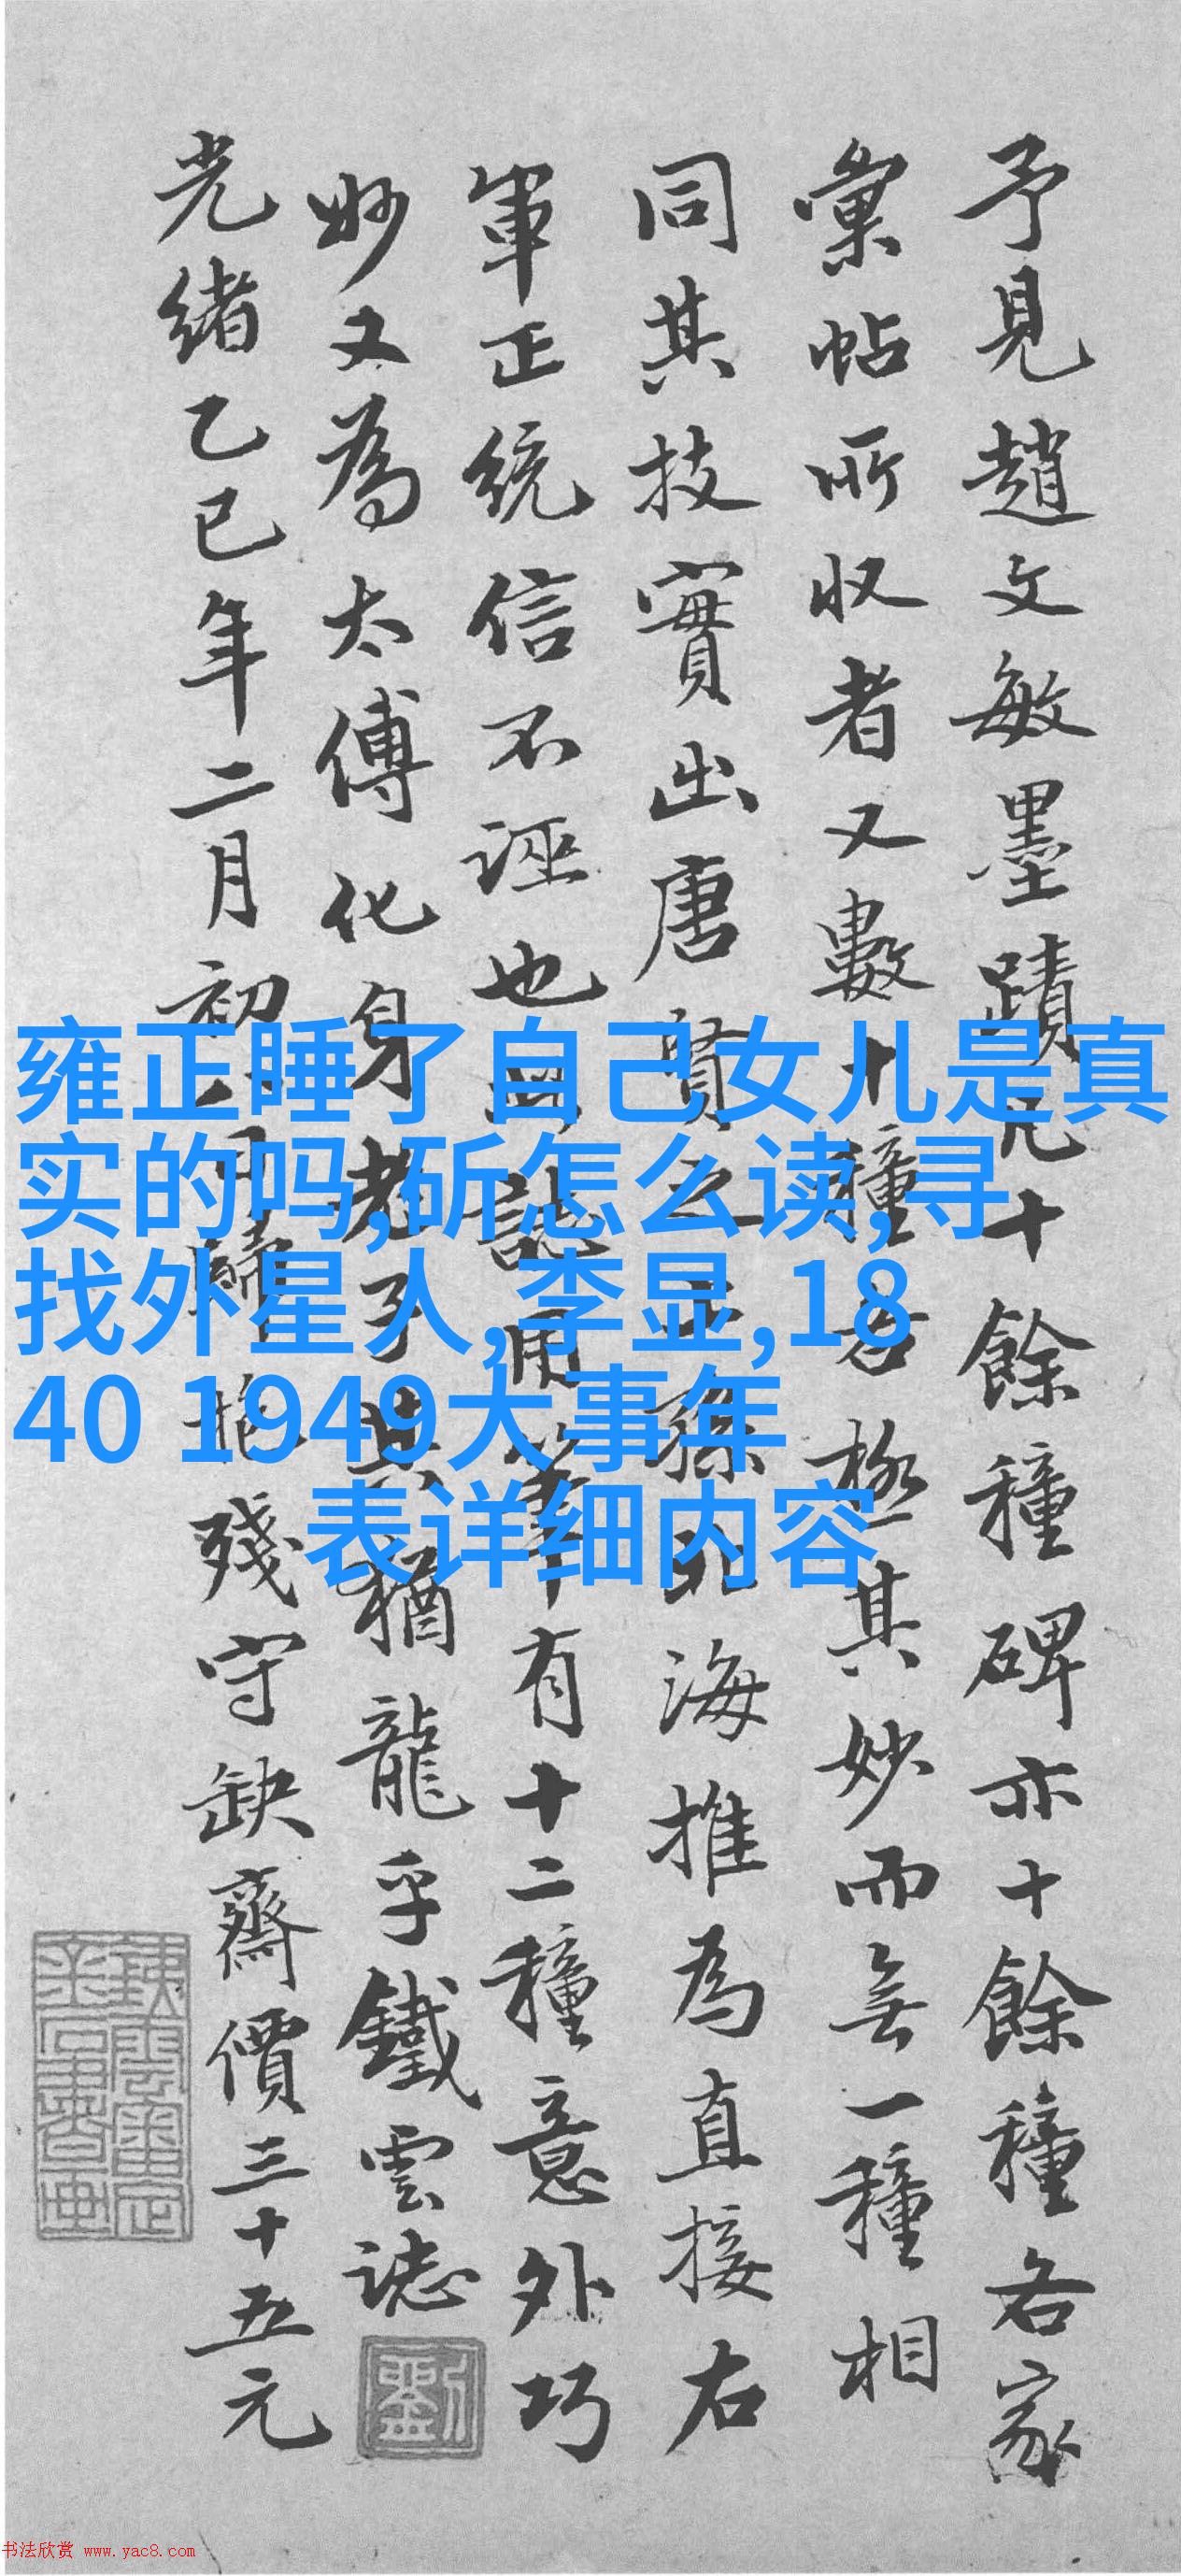 予見趙文敏墨蹟凡十餘種碑亦十餘種各家
彙帖所収者又數十種各極其妙而無一種相
同其技實出唐賢之上孫北海推為直接右
軍正統信不誣也此誌用筆有十二種意外巧
妙又為太傅化身老子其猶龍乎鐵雲誌
光緒乙巳年二月初一日歸抱殘守缺齋價三十五元
雍正睡了自己女儿是真
实的吗,斫怎么读,寻
找外星人,李显,18
40 1949大事年
表详细内容
劉
书法欣赏 www.yac8.com